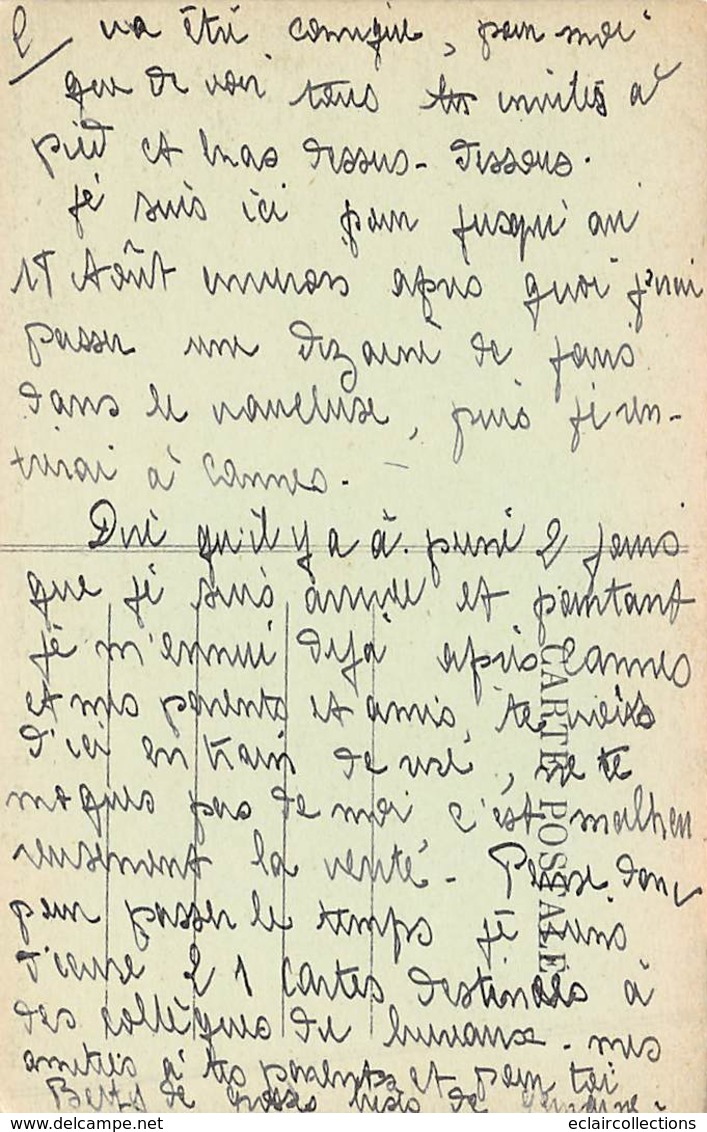 2/ va être comique, pour moi
que de voir tous les invités à
pied et bras dessus-dessous.
Je suis ici pour jusqu'au
15 Août environ après quoi j'irai
passer une dizaine de jours
dans le vaucluse, puis je ren-
trerai à Cannes. -
Dire qu'il y a à peine 2 jours
que je suis arrivée et pourtant
je m'ennui déjà après Cannes
et mes parents et amis, te vois
d'ici en train de rire, ne te
moques pas de moi c'est malheu
reusement la vérité. Pense donc
pour passer le temps je viens
d'écrire 21 cartes destinées à
des collègues de bureaux. mes
amitiés à tes parents et pour toi
Betty de gross bises de Germaine.
CARTE POSTALE
www.eclaircollections.com - eclaircollections